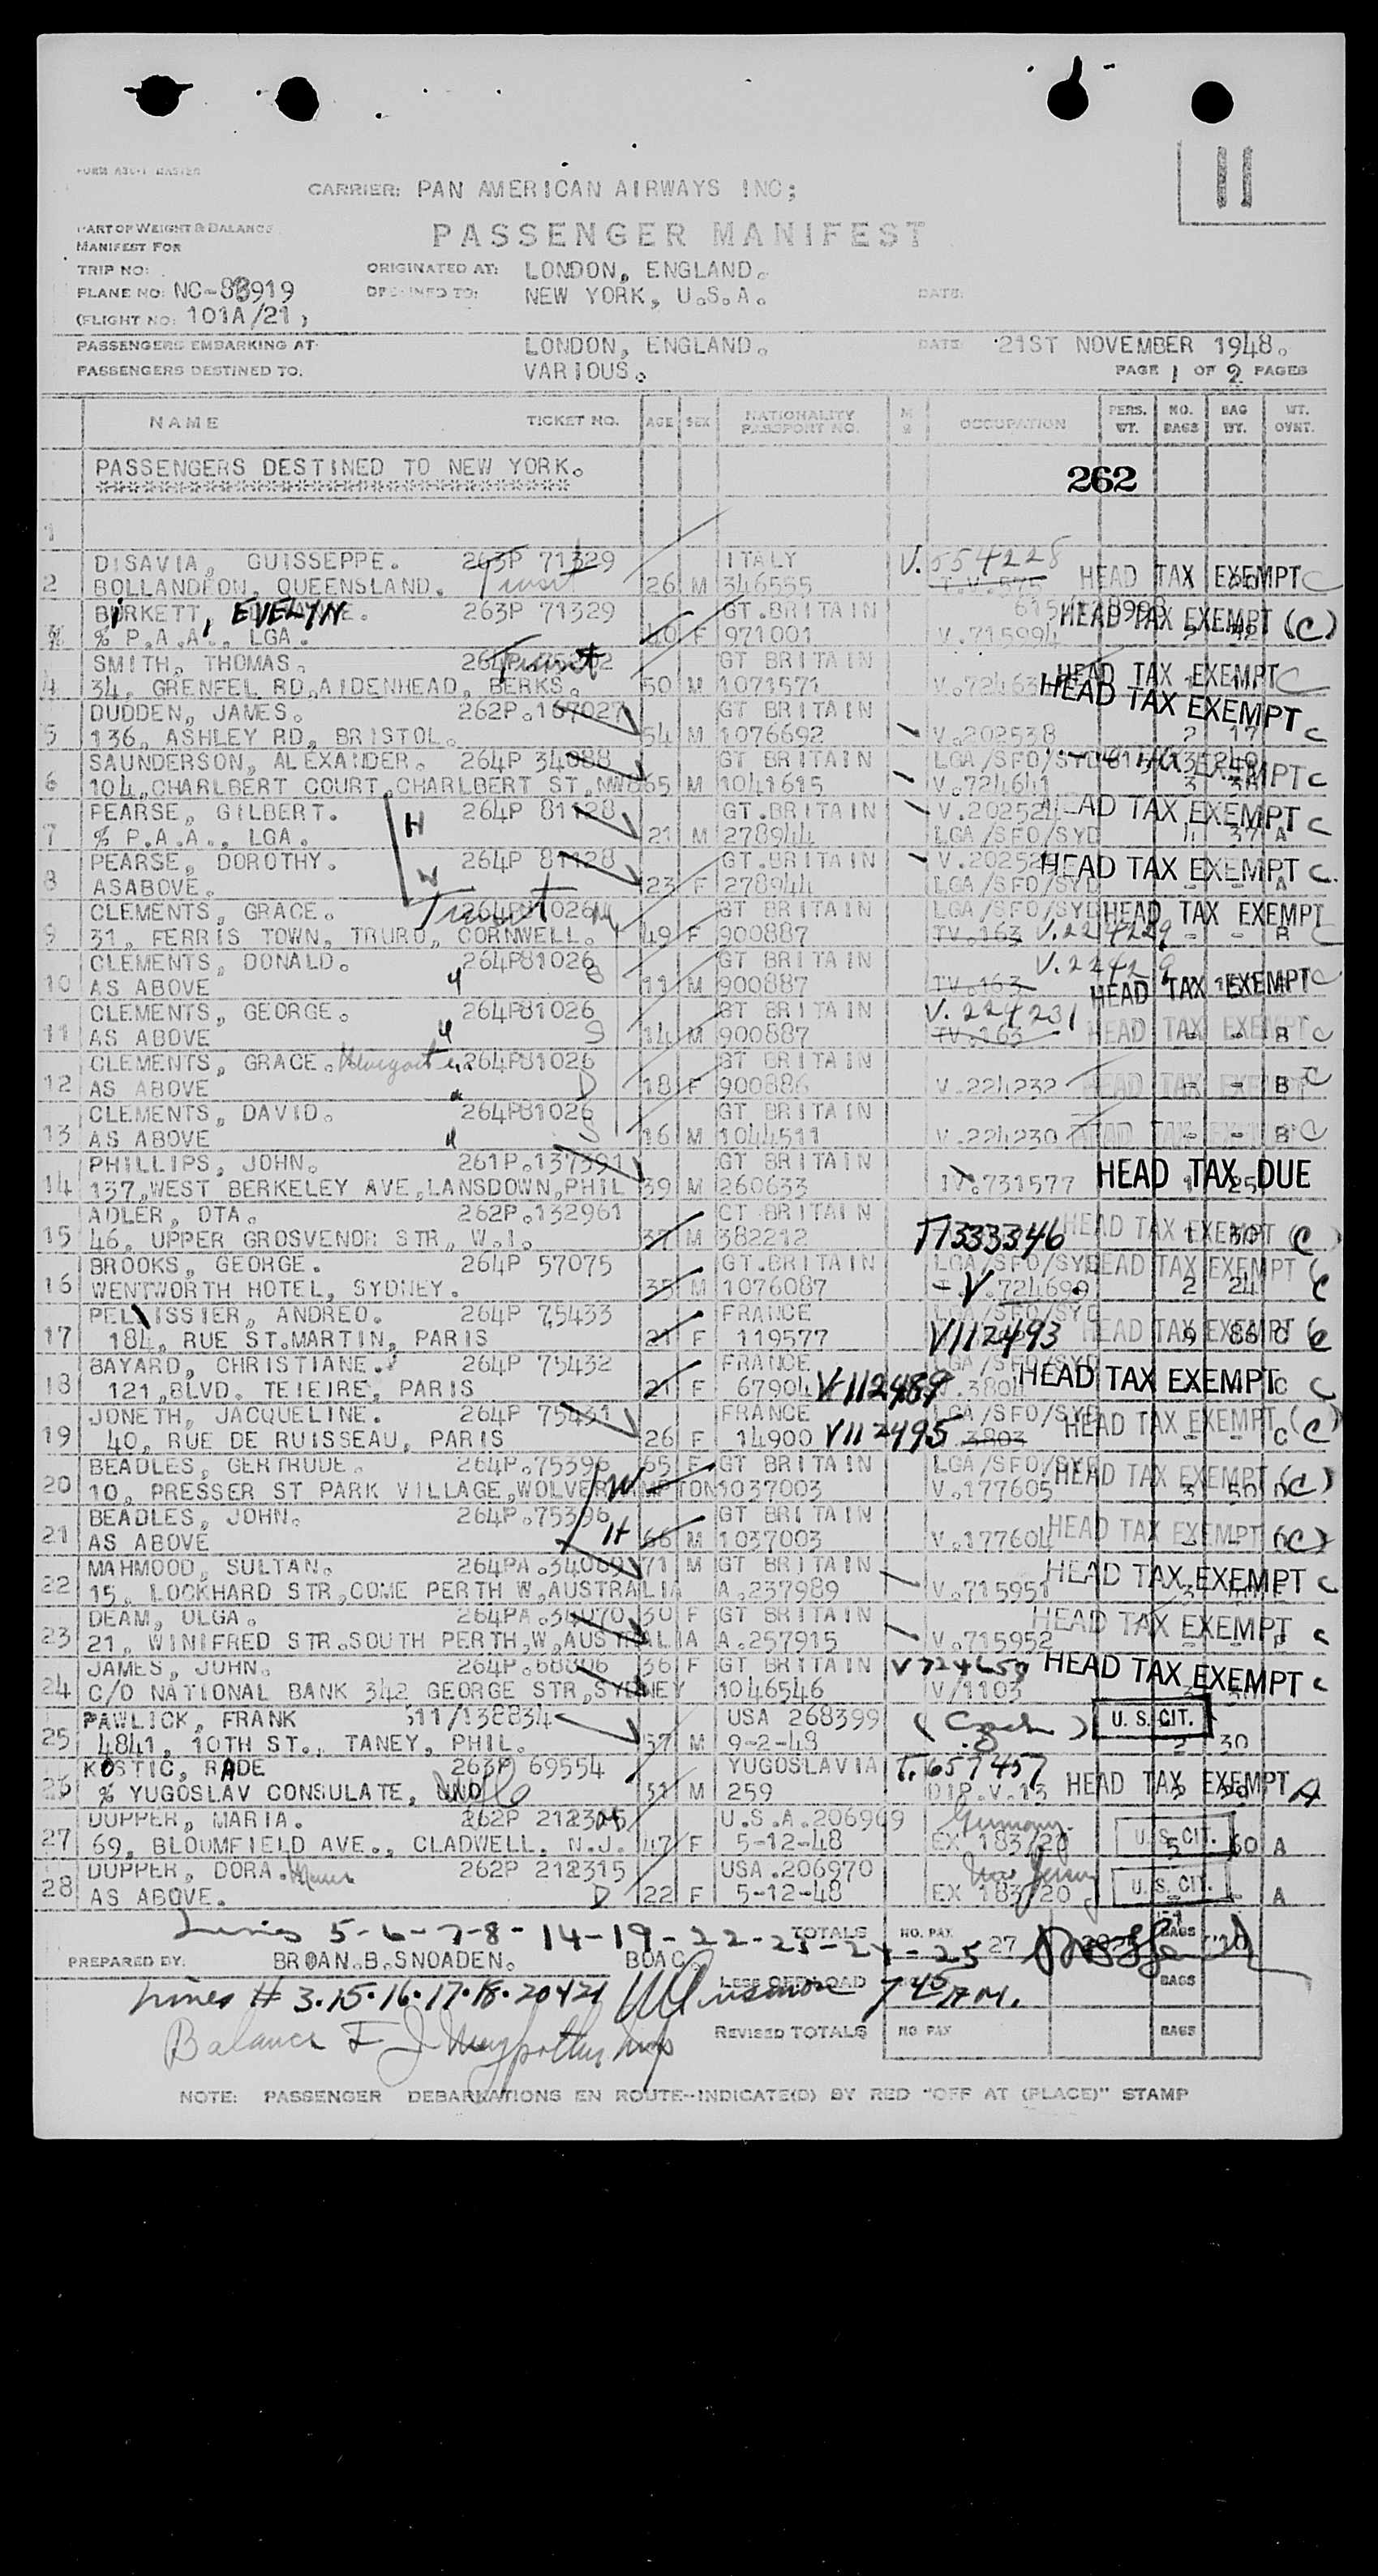 CARRIER: PAN AMERICAN AIRWAYS INC;
11
PART OF WEIGHT & BALANCE
PASSENGER MANIFEST
MANIFEST FOR
TRIP NO: ORIGINATED AT: LONDON, ENGLAND.
PLANE NO: NC-88919 DESTINED TO: NEW YORK, U.S.A. DATE:
(FLIGHT NO: 101A/21)
PASSENGERS EMBARKING AT: LONDON, ENGLAND. DATE: 21ST NOVEMBER 1948.
PASSENGERS DESTINED TO: VARIOUS. PAGE 1 OF 2 PAGES
NAME TICKET NO. AGE SEX NATIONALITY PASSPORT NO. OCCUPATION PERS. WT. NO. BAGS BAG WT. WT. OVNT.
PASSENGERS DESTINED TO NEW YORK. 262
****************************************
1
DISAVIA, GUISSEPPE. 263P 71329 ITALY V.554228
2 BOLLANDEON, QUEENSLAND. Transit 26 M 346555 T.V.575 HEAD TAX EXEMPT C
BIRKETT, EVELYN. 263P 71329 GT.BRITAIN
3 % P.A.A., LGA. 40 F 971001 V.715994 HEAD TAX EXEMPT (C)
SMITH, THOMAS. Transit GT BRITAIN
4 34, GRENFEL RD,AIDENHEAD, BERKS. 50 M 1071571 HEAD TAX EXEMPT C
DUDDEN, JAMES. 262P.167027 GT BRITAIN HEAD TAX EXEMPT C
5 136, ASHLEY RD, BRISTOL. 54 M 1076692 V.202538 2 17
SAUNDERSON, ALEXANDER. 264P 34088 GT BRITAIN LGA/SFO/SYD
6 104,CHARLBERT COURT,CHARLBERT ST,NW8 65 M 1041615 V.724641 EXEMPT C
PEARSE, GILBERT. H 264P 81128 GT.BRITAIN HEAD TAX EXEMPT C
7 % P.A.A., LGA. 21 M 278944 LGA/SFO/SYD 4 37 A
PEARSE, DOROTHY. 264P 81128 GT.BRITAIN HEAD TAX EXEMPT C.
8 ASABOVE. W 23 F 278944 LGA/SFO/SYD - - A
CLEMENTS, GRACE. Transit 264P81026 M GT BRITAIN LGA/SFO/SYD HEAD TAX EXEMPT
9 31, FERRIS TOWN, TRURO, CORNWELL. 49 F 900887 TV.163 V.224229 - - B C
CLEMENTS, DONALD. 264P81026 GT BRITAIN
10 AS ABOVE " S 11 M 900887 TV.163 HEAD TAX EXEMPT C
CLEMENTS, GEORGE. 264P81026 GT BRITAIN V.224231
11 AS ABOVE " S 14 M 900887 TV.163 HEAD TAX EXEMPT B C
CLEMENTS, GRACE. 264P81026 GT BRITAIN
12 AS ABOVE " D 18 F 900886 V.224232 HEAD TAX EXEMPT B C
CLEMENTS, DAVID. 264P81026 GT BRITAIN
13 AS ABOVE " S 16 M 1044511 V.224230 HEAD TAX EXEMPT B C
PHILLIPS, JOHN. 261P.137391 GT BRITAIN
14 137,WEST BERKELEY AVE,LANSDOWN,PHIL 39 M 260633 TV.731577 HEAD TAX DUE 1 25
ADLER, OTA. 262P.132961 GT BRITAIN
15 46, UPPER GROSVENOR STR, W.1. 37 M 382212 T1333346 HEAD TAX EXEMPT 1 30 (C)
BROOKS, GEORGE. 264P 57075 GT.BRITAIN LGA/SFO/SYD HEAD TAX EXEMPT
16 WENTWORTH HOTEL, SYDNEY. 35 M 1076087 V.724699 2 24 C
PELISSIER, ANDREO. 264P 75433 FRANCE LGA/SFO/SYD
17 184, RUE ST.MARTIN, PARIS 21 F 119577 V112493 HEAD TAX EXEMPT 9 86 C C
BAYARD, CHRISTIANE. 264P 75432 FRANCE LGA/SFO/SYD
18 121,BLVD. TEIEIRE, PARIS 21 F 67904 V112489 HEAD TAX EXEMPT C C
JONETH, JACQUELINE. 264P 75431 FRANCE LGA/SFO/SYD
19 40, RUE DE RUISSEAU, PARIS 26 F 14900 V112495 3803 HEAD TAX EXEMPT C (C)
BEADLES, GERTRUDE. 264P.75396 65 F GT BRITAIN LGA/SFO/SYD
20 10, PRESSER ST PARK VILLAGE,WOLVERHAMPTON W 1037003 V.177605 HEAD TAX EXEMPT 3 50 D (C)
BEADLES, JOHN. 264P.75396 GT BRITAIN
21 AS ABOVE H 66 M 1037003 V.177604 HEAD TAX EXEMPT (C)
MAHMOOD, SULTAN. 264PA.34069 71 M GT BRITAIN
22 15, LOCKHARD STR,COME PERTH W,AUSTRALIA A.237989 V.715951 HEAD TAX EXEMPT C
DEAM, OLGA. 264PA.34070 30 F GT BRITAIN
23 21, WINIFRED STR.SOUTH PERTH,W,AUSTRALIA A.257915 V.715952 HEAD TAX EXEMPT C
JAMES, JOHN. 264P.68806 36 F GT BRITAIN V724659
24 C/O NATIONAL BANK 342 GEORGE STR,SYDNEY 1046546 V/1103 HEAD TAX EXEMPT C
PAWLICK, FRANK 511/138834 USA 268399 (Czech) U.S. CIT.
25 4841, 10TH ST., TANEY, PHIL. 57 M 9-2-48 2 30
KOSTIC, RADE 263P 69554 YUGOSLAVIA T.657457
26 % YUGOSLAV CONSULATE, 51 M 259 DIP.V.13 HEAD TAX EXEMPT A
DUPPER, MARIA. 262P U.S.A.206969 Germany
27 69, BLOUMFIELD AVE., CLADWELL, N.J. 47 F 5-12-48 EX 183/20 U.S. CIT. 5 60 A
DUPPER, DORA. 262P 212315 USA.206970 New Jersey
28 AS ABOVE. D 22 F 5-12-48 EX 183/20 U.S. CIT. A
Lines 5-6-7-8-14-19-22-23-24-25 TOTALS NO. PAX 27 BAGS
PREPARED BY: BROAN.B.SNOADEN. BOAC. LESS OFFLOAD BAGS
Lines # 3.15.16.17.18.20&21 7 45 P.M.
Balance REVISED TOTALS NO PAX BAGS
NOTE: PASSENGER DEBARKATIONS EN ROUTE--INDICATE(D) BY RED "OFF AT (PLACE)" STAMP